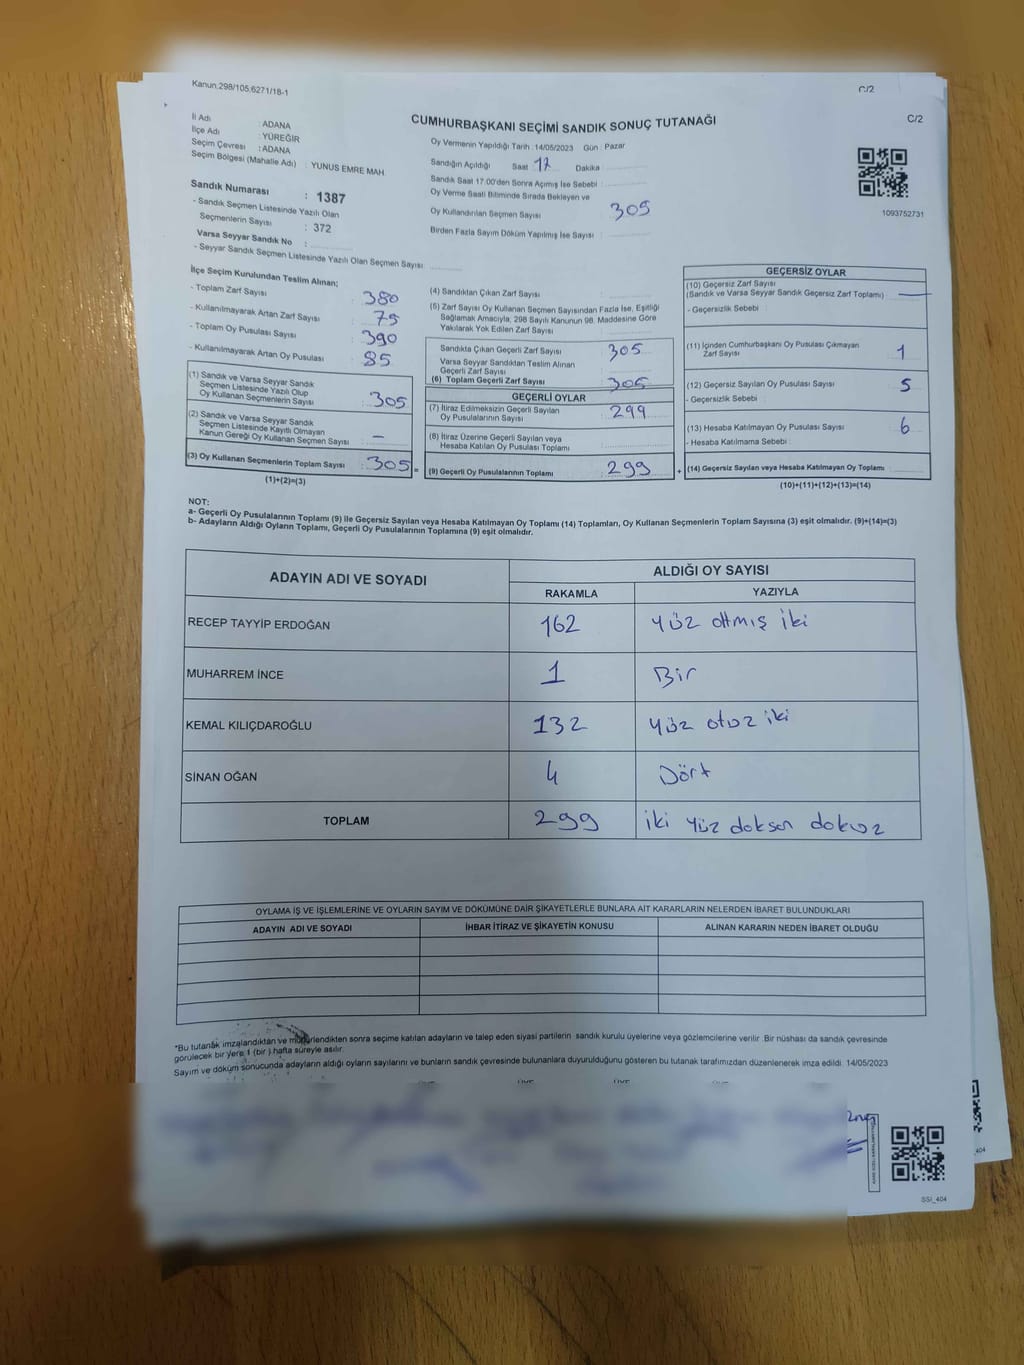 Kanun.298/105,6271/18-1
C/2
C/2
CUMHURBAŞKANI SEÇİMİ SANDIK SONUÇ TUTANAĞI
İl Adı : ADANA
İlçe Adı : YÜREĞİR
Seçim Çevresi : ADANA
Seçim Bölgesi (Mahalle Adı) : YUNUS EMRE MAH.
Sandık Numarası : 1387
- Sandık Seçmen Listesinde Yazılı Olan
Seçmenlerin Sayısı : 372
Varsa Seyyar Sandık No :
- Seyyar Sandık Seçmen Listesinde Yazılı Olan Seçmen Sayısı:
Oy Vermenin Yapıldığı Tarih :14/05/2023 Gün : Pazar
Sandığın Açıldığı Saat 17 Dakika :
Sandık Saat 17.00'den Sonra Açımış İse Sebebi :
Oy Verme Saati Bitiminde Sırada Bekleyen ve
Oy Kullandırılan Seçmen Sayısı 305
Birden Fazla Sayım Döküm Yapılmış İse Sayısı :
1093752731
İlçe Seçim Kurulundan Teslim Alınan;
- Toplam Zarf Sayısı : 380
- Kullanılmayarak Artan Zarf Sayısı : 75
- Toplam Oy Pusulası Sayısı : 390
- Kullanılmayarak Artan Oy Pusulası : 85
(1) Sandık ve Varsa Seyyar Sandık
Seçmen Listesinde Yazılı Olup
Oy Kullanan Seçmenlerin Sayısı : 305
(2) Sandık ve Varsa Seyyar Sandık
Seçmen Listesinde Kayıtlı Olmayan
Kanun Gereği Oy Kullanan Seçmen Sayısı : –
(3) Oy Kullanan Seçmenlerin Toplam Sayısı : 305 =
(1)+(2)=(3)
(4) Sandıktan Çıkan Zarf Sayısı :
(5) Zarf Sayısı Oy Kullanan Seçmen Sayısından Fazla İse, Eşitliği
Sağlamak Amacıyla, 298 Sayılı Kanunun 98. Maddesine Göre
Yakılarak Yok Edilen Zarf Sayısı :
Sandıkta Çıkan Geçerli Zarf Sayısı : 305
Varsa Seyyar Sandıktan Teslim Alınan
Geçerli Zarf Sayısı :
(6) Toplam Geçerli Zarf Sayısı : 305
GEÇERLİ OYLAR
(7) İtiraz Edilmeksizin Geçerli Sayılan
Oy Pusulalarının Sayısı : 299
(8) İtiraz Üzerine Geçerli Sayılan veya
Hesaba Katılan Oy Pusulası Toplamı :
(9) Geçerli Oy Pusulalarının Toplamı : 299 +
GEÇERSİZ OYLAR
(10) Geçersiz Zarf Sayısı
(Sandık ve Varsa Seyyar Sandık Geçersiz Zarf Toplamı) : —
- Geçersizlik Sebebi :
(11) İçinden Cumhurbaşkanı Oy Pusulası Çıkmayan
Zarf Sayısı : 1
(12) Geçersiz Sayılan Oy Pusulası Sayısı : 5
- Geçersizlik Sebebi :
(13) Hesaba Katılmayan Oy Pusulası Sayısı : 6
- Hesaba Katılmama Sebebi :
(14) Geçersiz Sayılan veya Hesaba Katılmayan Oy Toplamı :
(10)+(11)+(12)+(13)=(14)
NOT:
a- Geçerli Oy Pusulalarının Toplamı (9) ile Geçersiz Sayılan veya Hesaba Katılmayan Oy Toplamı (14) Toplamları, Oy Kullanan Seçmenlerin Toplam Sayısına (3) eşit olmalıdır. (9)+(14)=(3)
b- Adayların Aldığı Oyların Toplamı, Geçerli Oy Pusulalarının Toplamına (9) eşit olmalıdır.
ADAYIN ADI VE SOYADI ALDIĞI OY SAYISI
RAKAMLA YAZIYLA
RECEP TAYYİP ERDOĞAN 162 Yüz altmış iki
MUHARREM İNCE 1 Bir
KEMAL KILIÇDAROĞLU 132 Yüz otuz iki
SİNAN OĞAN 4 Dört
TOPLAM 299 iki yüz doksan dokuz
OYLAMA İŞ VE İŞLEMLERİNE VE OYLARIN SAYIM VE DÖKÜMÜNE DAİR ŞİKAYETLERLE BUNLARA AİT KARARLARIN NELERDEN İBARET BULUNDUKLARI
ADAYIN ADI VE SOYADI İHBAR İTİRAZ VE ŞİKAYETİN KONUSU ALINAN KARARIN NEDEN İBARET OLDUĞU
*Bu tutanak imzalandıktan ve mühürlendikten sonra seçime katılan adayların ve talep eden siyasi partilerin sandık kurulu üyelerine veya gözlemcilerine verilir. Bir nüshası da sandık çevresinde
görülecek bir yere 1 (bir ) hafta süreyle asılır.
Sayım ve döküm sonucunda adayların aldığı oyların sayılarını ve bunların sandık çevresinde bulunanlara duyurulduğunu gösteren bu tutanak tarafımızdan düzenlenerek imza edildi. 14/05/2023
SSI_404